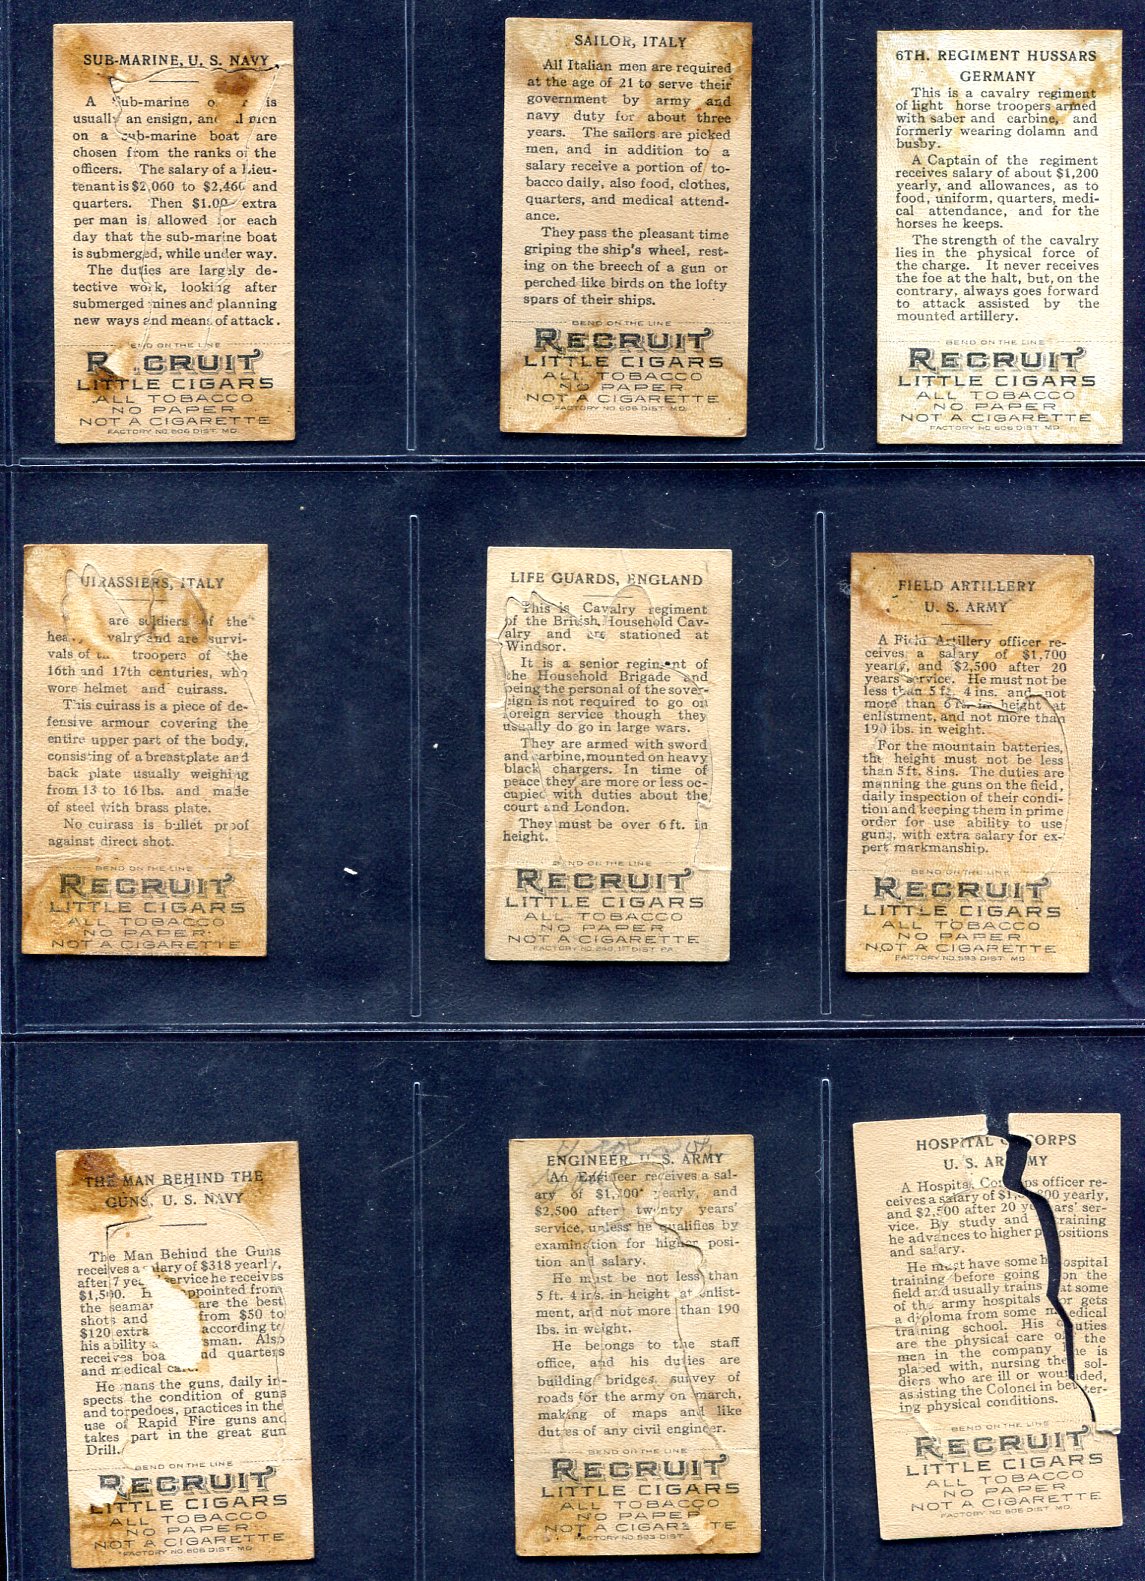 SUB-MARINE, U. S. NAVY.
A Sub-marine is
usually an ensign, and men
on a sub-marine boat are
chosen from the ranks of the
officers. The salary of a Lieu-
tenant is $2,060 to $2,460 and
quarters. Then $1.00 extra
per man is allowed for each
day that the sub-marine boat
is submerged, while under way.
The duties are largely de-
tective work, looking after
submerged mines and planning
new ways and means of attack.
BEND ON THE LINE
RECRUIT
LITTLE CIGARS
ALL TOBACCO
NO PAPER
NOT A CIGARETTE
FACTORY NO. 606 DIST. MD.
SAILOR, ITALY
All Italian men are required
at the age of 21 to serve their
government by army and
navy duty for about three
years. The sailors are picked
men, and in addition to a
salary receive a portion of to-
bacco daily, also food, clothes,
quarters, and medical attend-
ance.
They pass the pleasant time
griping the ship's wheel, rest-
ing on the breech of a gun or
perched like birds on the lofty
spars of their ships.
BEND ON THE LINE
RECRUIT
LITTLE CIGARS
ALL TOBACCO
NO PAPER
NOT A CIGARETTE
FACTORY NO. 606 DIST. MD.
6TH. REGIMENT HUSSARS
GERMANY
This is a cavalry regiment
of light horse troopers armed
with saber and carbine, and
formerly wearing dolamn and
busby.
A Captain of the regiment
receives salary of about $1,200
yearly, and allowances, as to
food, uniform, quarters, medi-
cal attendance, and for the
horses he keeps.
The strength of the cavalry
lies in the physical force of
the charge. It never receives
the foe at the halt, but, on the
contrary, always goes forward
to attack assisted by the
mounted artillery.
BEND ON THE LINE
RECRUIT
LITTLE CIGARS
ALL TOBACCO
NO PAPER
NOT A CIGARETTE
FACTORY NO. 606 DIST. MD.
UIRASSIERS, ITALY
are soldiers of the
heavy cavalry and are survi-
vals of troopers of the
16th and 17th centuries, who
wore helmet and cuirass.
This cuirass is a piece of de-
fensive armour covering the
entire upper part of the body,
consisting of a breastplate and
back plate usually weighing
from 13 to 16 lbs. and made
of steel with brass plate.
No cuirass is bullet proof
against direct shot.
BEND ON THE LINE
RECRUIT
LITTLE CIGARS
ALL TOBACCO
NO PAPER
NOT A CIGARETTE
LIFE GUARDS, ENGLAND
This is Cavalry regiment
of the British Household Cav-
alry and are stationed at
Windsor.
It is a senior regiment of
the Household Brigade and
being the personal of the sover-
eign is not required to go on
foreign service though they
usually do go in large wars.
They are armed with sword
and carbine, mounted on heavy
black chargers. In time of
peace they are more or less oc-
cupied with duties about the
court and London.
They must be over 6 ft. in
height.
BEND ON THE LINE
RECRUIT
LITTLE CIGARS
ALL TOBACCO
NO PAPER
NOT A CIGARETTE
FACTORY NO. 240, 1ST DIST. PA.
FIELD ARTILLERY
U. S. ARMY
A Field Artillery officer re-
ceives a salary of $1,700
yearly, and $2,500 after 20
years service. He must not be
less than 5 ft. 4 ins. and not
more than 6 ft. in height at
enlistment, and not more than
190 lbs. in weight.
For the mountain batteries,
the height must not be less
than 5 ft. 8 ins. The duties are
manning the guns on the field,
daily inspection of their condi-
tion and keeping them in prime
order for use ability to use
guns, with extra salary for ex-
pert markmanship.
BEND ON THE LINE
RECRUIT
LITTLE CIGARS
ALL TOBACCO
NO PAPER
NOT A CIGARETTE
FACTORY NO. 593 DIST. MD.
THE MAN BEHIND THE
GUNS, U. S. NAVY
The Man Behind the Guns
receives a salary of $318 yearly,
after 7 years service he receives
$1,500. appointed from
the seamen are the best
shots and from $50 to
$120 extra according to
his ability Also
receives board and quarters
and medical care.
He mans the guns, daily in-
spects the condition of guns
and torpedoes, practices in the
use of Rapid Fire guns and
takes part in the great gun
Drill.
BEND ON THE LINE
RECRUIT
LITTLE CIGARS
ALL TOBACCO
NO PAPER
NOT A CIGARETTE
FACTORY NO. 606 DIST. MD.
ENGINEER, U. S. ARMY
An Engineer receives a sal-
ary of yearly, and
$2,500 after twenty years'
service, unless he qualifies by
examination for higher posi-
tion and salary.
He must be not less than
5 ft. 4 ins. in height at enlist-
ment, and not more than 190
lbs. in weight.
He belongs to the staff
office, and his duties are
building bridges, survey of
roads for the army on march,
making of maps and like
duties of any civil engineer.
BEND ON THE LINE
RECRUIT
LITTLE CIGARS
ALL TOBACCO
NO PAPER
NOT A CIGARETTE
FACTORY NO. 593 DIST.
HOSPITAL CORPS
U. S. ARMY
A Hospital Corps officer re-
ceives a salary of yearly,
and $2,500 after 20 years' ser-
vice. By study and training
he advances to higher positions
and salary.
He must have some hospital
training before going on the
field and usually trains at some
of the army hospitals or gets
a diploma from some medical
training school. His duties
are the physical care of the
men in the company he is
placed with, nursing the sol-
diers who are ill or wounded,
assisting the Colonel in better-
ing physical conditions.
BEND ON THE LINE
RECRUIT
LITTLE CIGARS
ALL TOBACCO
NO PAPER
NOT A CIGARETTE
FACTORY NO. 606 DIST. MD.